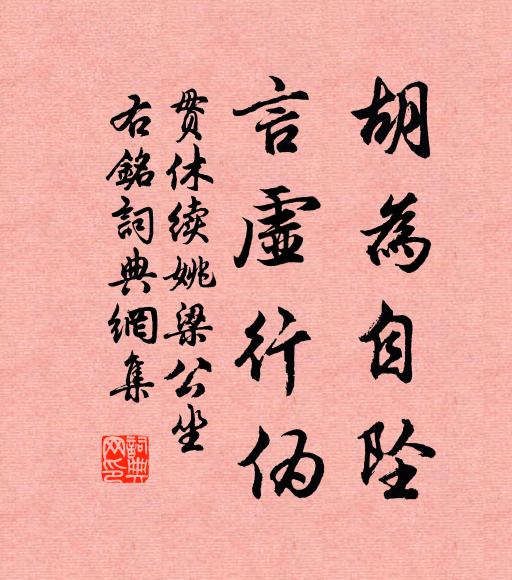 胡為自墜
言虛行偽
貫休续姚梁公坐
右銘詞典網集
詞典網印